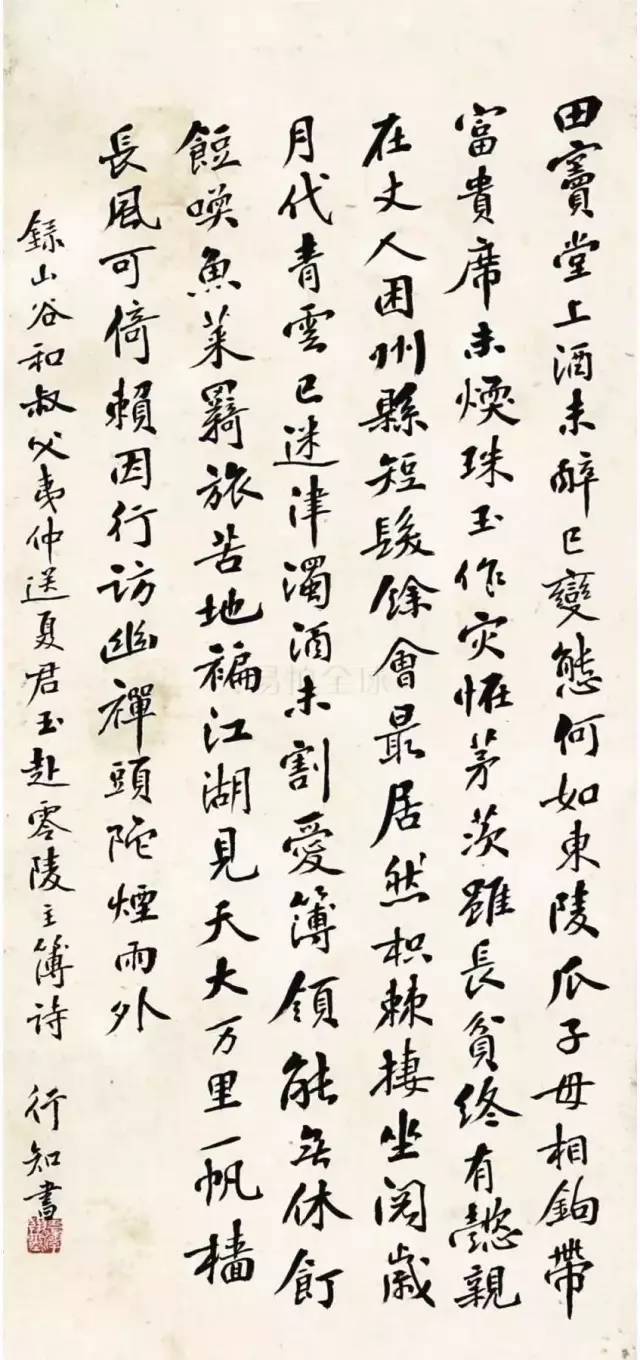 田竇堂上酒未醉已變態何如東陵瓜子母相鉤帶
富貴席未煗珠玉作灾怪茅茨雖長貧終有懿親
在丈人困州縣短髮餘會最居然枳棘捿坐閱歲
月代青雲已迷津濁酒未割愛簿領能無休飣
餖喚魚菜羇旅苦地褊江湖見天大万里一帆檣
長風可倚賴因行訪幽禪頭陀煙雨外
錄山谷和叔父夷仲送夏君玉赴零陵主簿詩 行知書
易拍全球